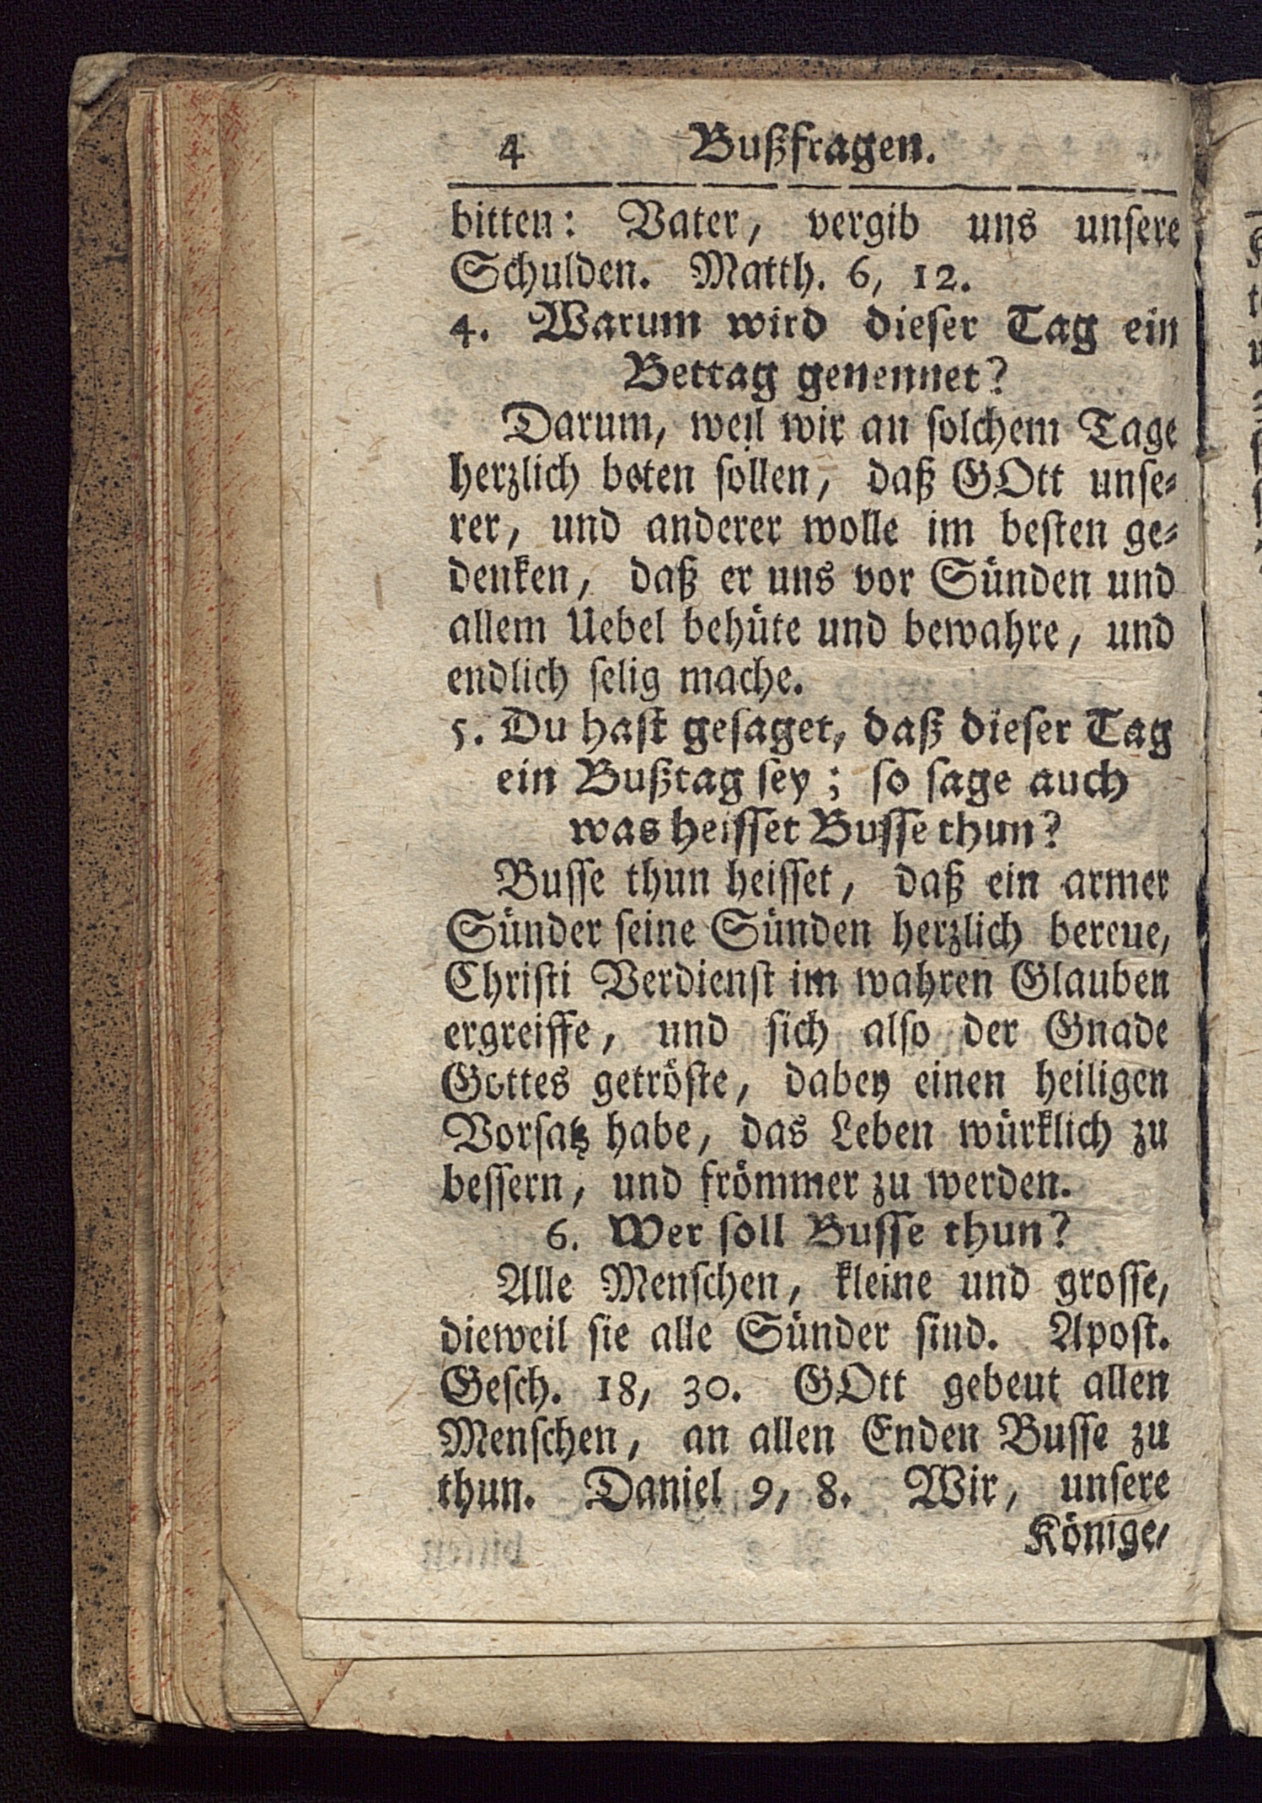 4 Bußfragen.
bitten: Vater, vergib uns unsere
Schulden. Matth. 6, 12.
4. Warum wird dieser Tag ein
Bettag genennet?
Darum, weil wir an solchem Tage
herzlich beten sollen, daß GOtt unse-
rer, und anderer wolle im besten ge-
denken, daß er uns vor Sünden und
allem Uebel behüte und bewahre, und
endlich selig mache.
5. Du hast gesaget, daß dieser Tag
ein Bußtag sey; so sage auch
was heisset Busse thun?
Busse thun heisset, daß ein armer
Sünder seine Sünden herzlich bereue,
Christi Verdienst im wahren Glauben
ergreiffe, und sich also der Gnade
Gottes getröste, dabey einen heiligen
Vorsatz habe, das Leben würklich zu
bessern, und frömmer zu werden.
6. Wer soll Busse thun?
Alle Menschen, kleine und grosse,
dieweil sie alle Sünder sind. Apost.
Gesch. 18, 30. GOtt gebeut allen
Menschen, an allen Enden Busse zu
thun. Daniel 9, 8. Wir, unsere
Könige,